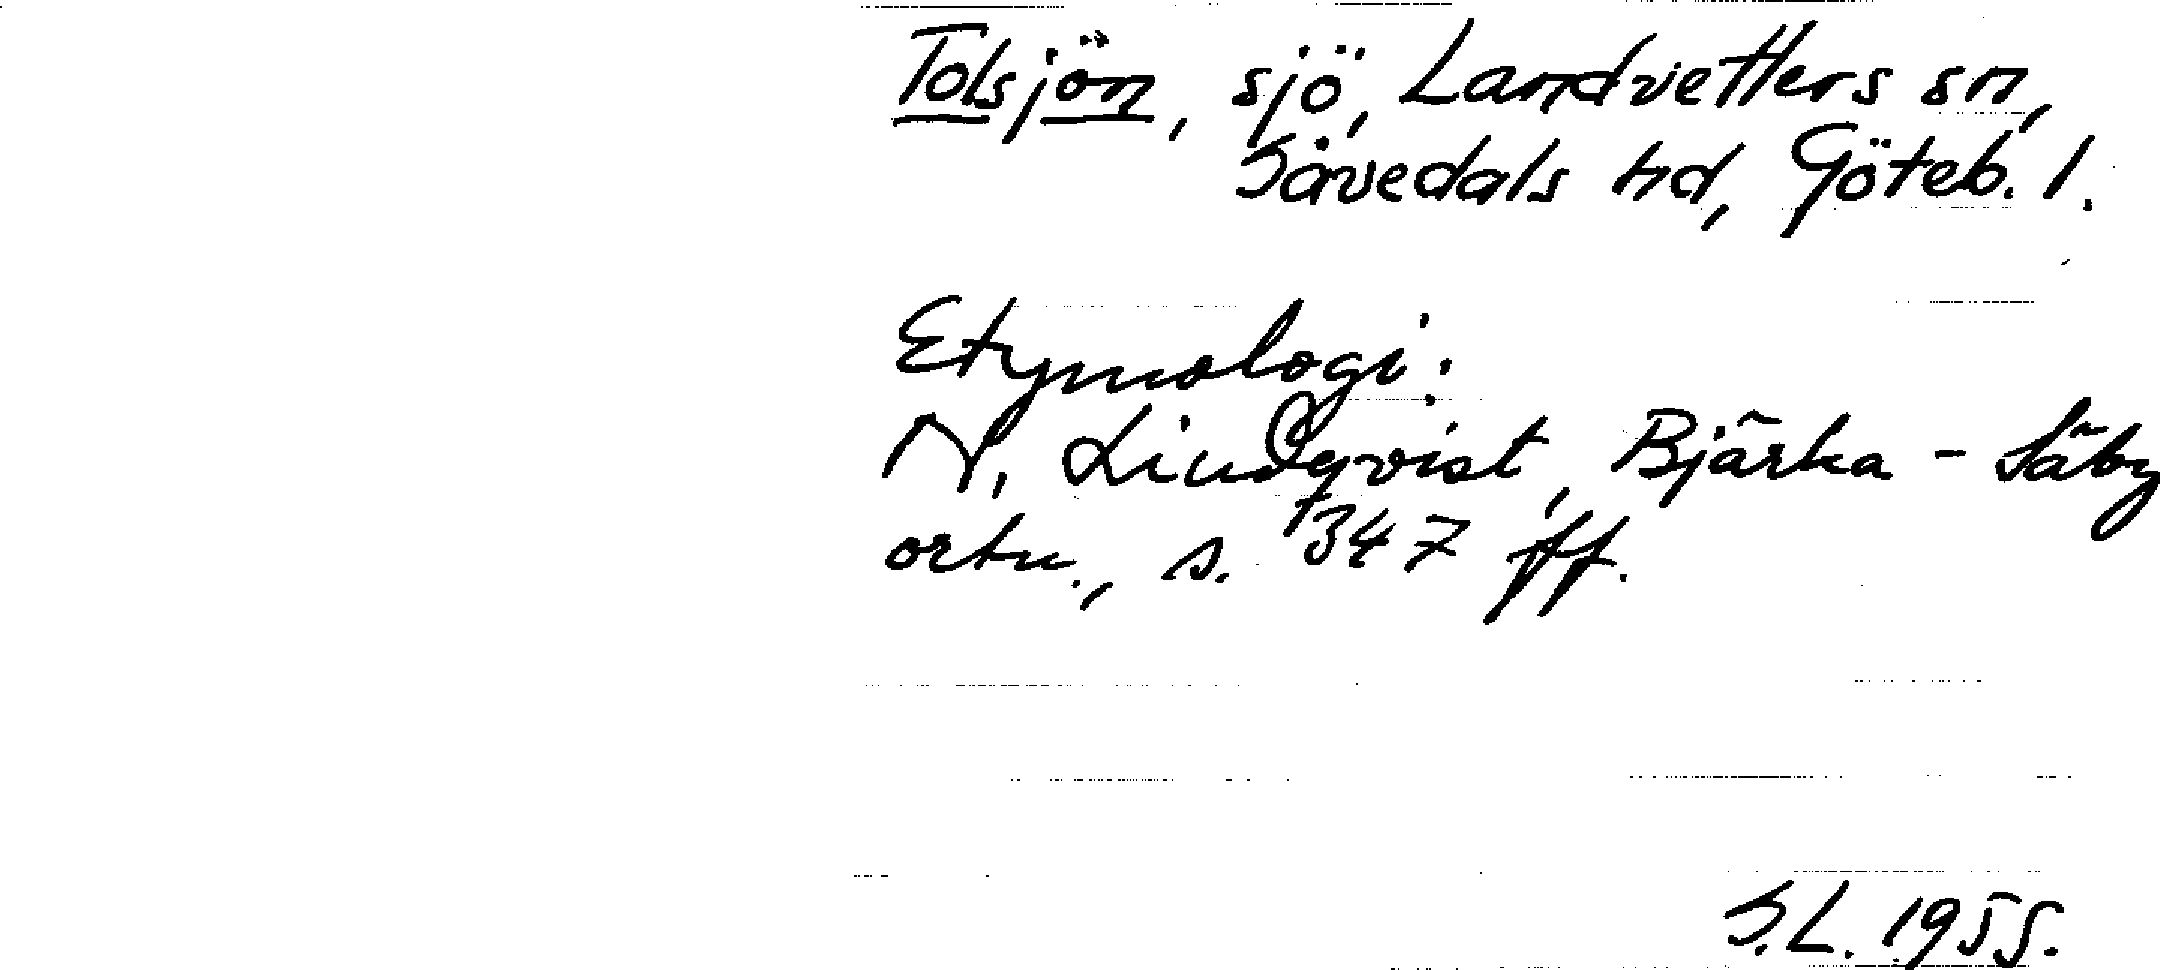 Tolsjön, sjö, Landvetters sn,
Sävedals hd, Göteb. l.
Etymologi:
N. Lindqvist, Bjärka-Säby
ortn., s. 347 ff.
S.L. 1955.